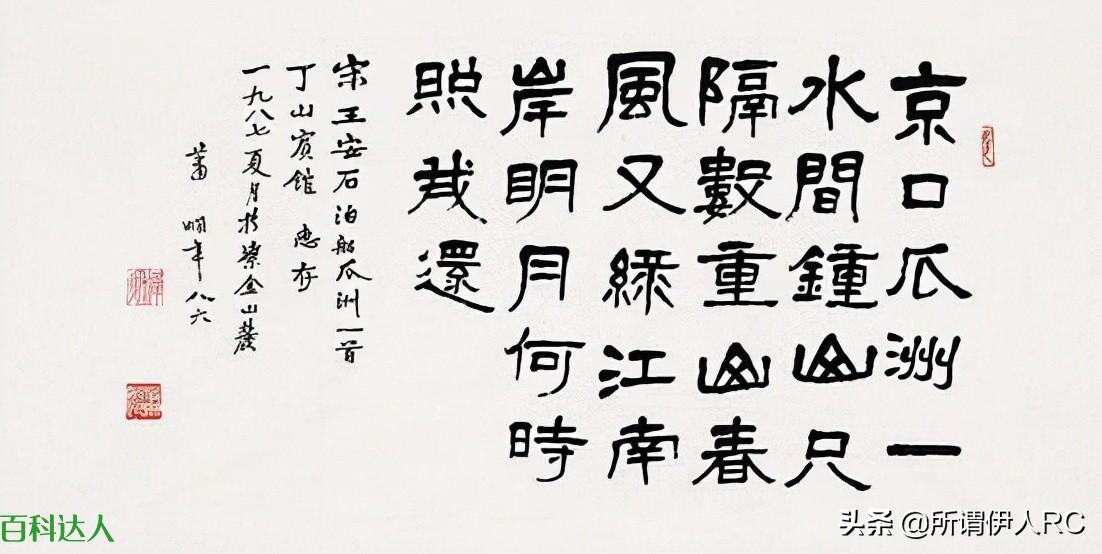 京口瓜洲一
水間鍾山只
隔數重山春
風又綠江南
岸明月何時
照我還
宋王安石泊船瓜洲一首
丁山賓館 惠存
一九八七夏月於紫金山麓
蕭嫻年八六
百科达人
头条 @所谓伊人RC